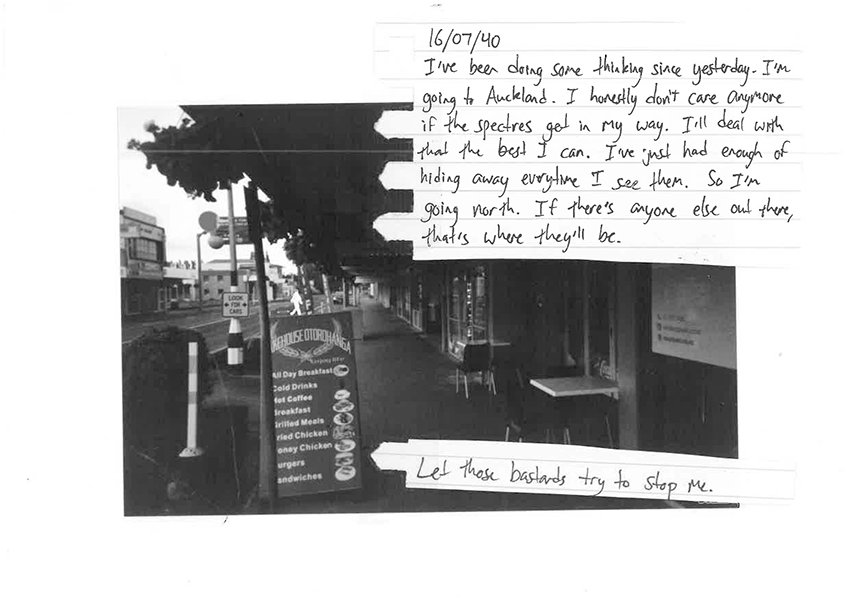 16/07/40
I've been doing some thinking since yesterday. I'm
going to Auckland. I honestly don't care anymore
if the spectres get in my way. I'll deal with
that the best I can. I've just had enough of
hiding away everytime I see them. So I'm
going north. If there's anyone else out there,
that's where they'll be.
LOOK
FOR
CARS
KEHOUSE OTOROHANGA
All Day Breakfast
Cold Drinks
Hot Coffee
Breakfast
Grilled Meals
ried Chicken
oney Chicken
urgers
andwiches
Let those bastards try to stop me.